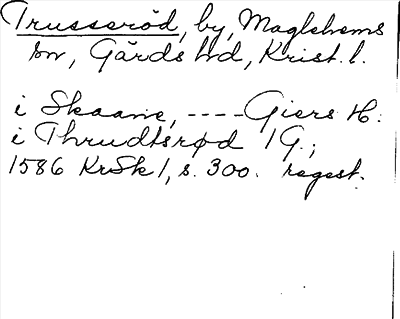 Trusseröd, by, Maglehems
sn, Gärds hd, Krist. l.
i Skaane, ---- Giers H:
i Thrudtsrød 1 G.;
1586 KrSk 1, s. 300. regest.